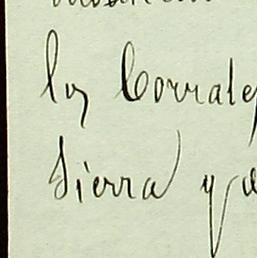 los Corrales
Sierra y